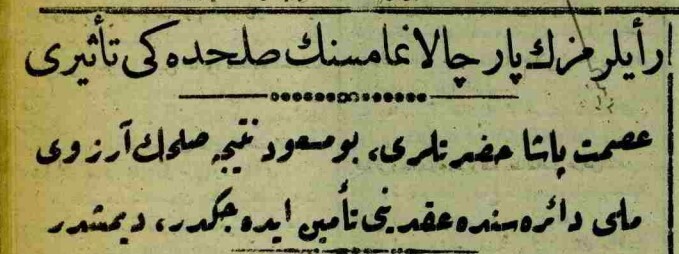 رأيلرمزك پارچالانمامسنك صلحده كی تأثيری
عصمت پاشا حضرتلری، بو مسعود نتيجه صلحك آرزوی
ملی دائره سنده عقدينی تأمين ايده جكدر، ديمشدر